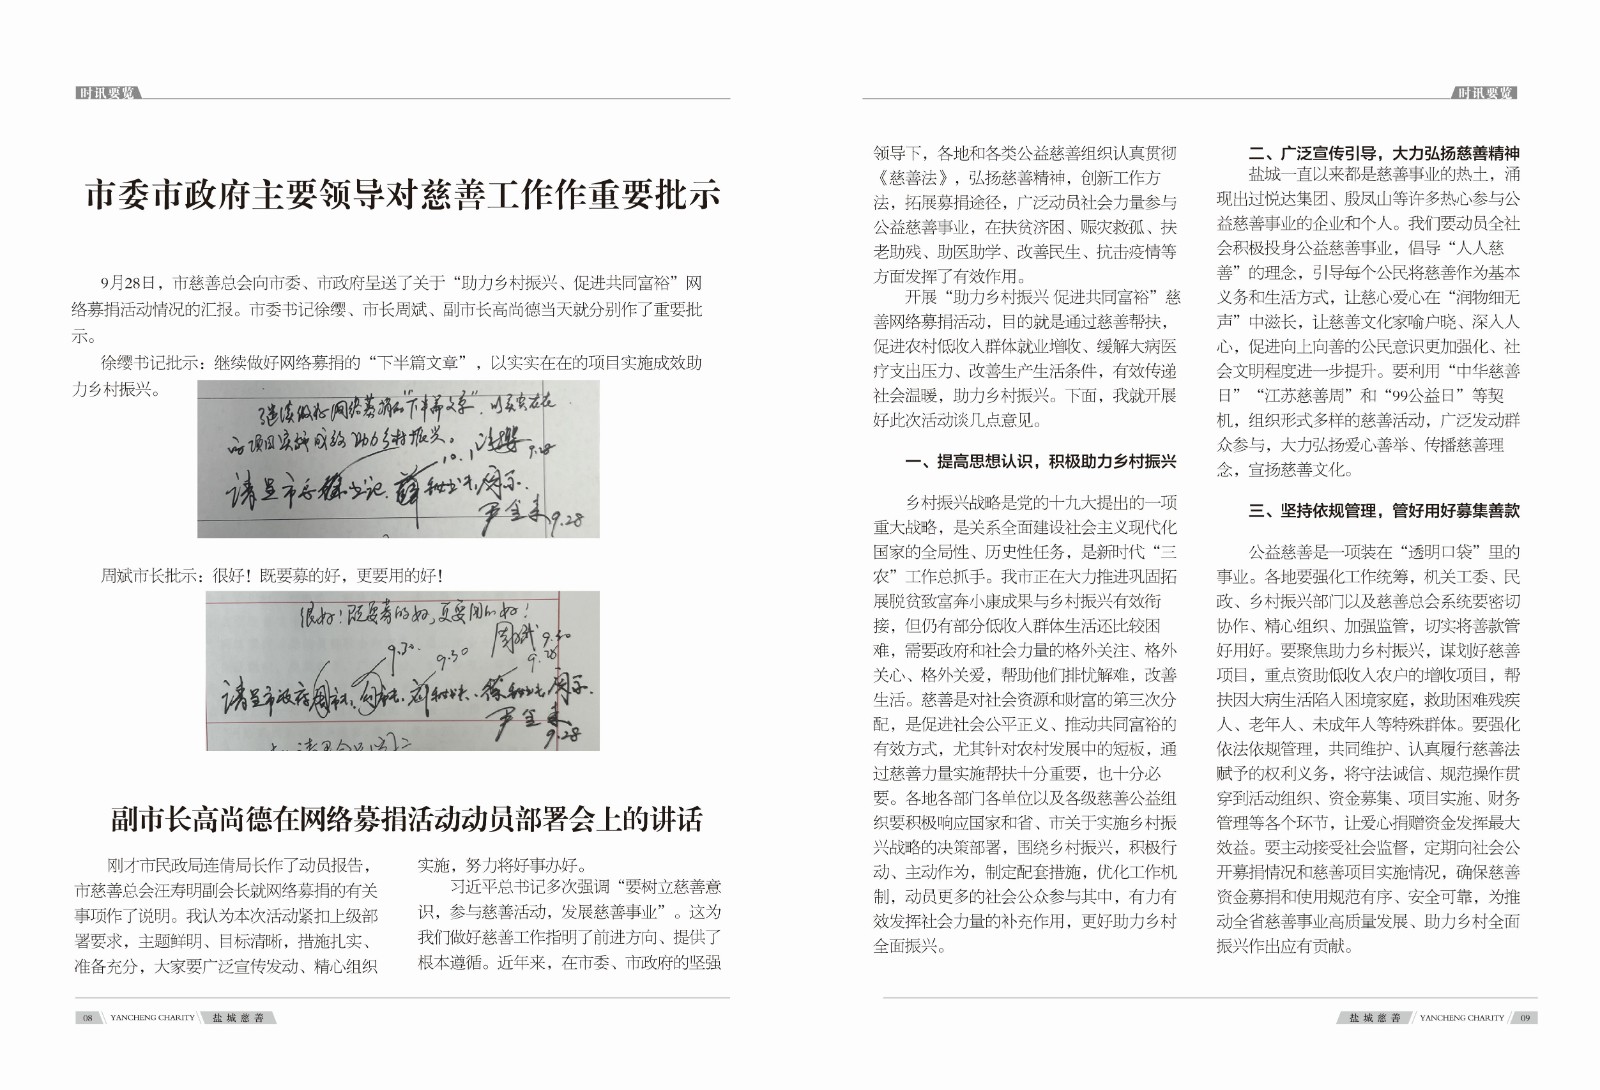 时讯要览
市委市政府主要领导对慈善工作作重要批示
9月28日，市慈善总会向市委、市政府呈送了关于“助力乡村振兴、促进共同富裕”网
络募捐活动情况的汇报。市委书记徐缨、市长周斌、副市长高尚德当天就分别作了重要批
示。
徐缨书记批示：继续做好网络募捐的“下半篇文章”，以实实在在的项目实施成效助
力乡村振兴。
继续做好网络募捐的“下半篇文章”，以实实在在
的项目实施成效助力乡村振兴。徐缨 9.28
10.1
9.28
周斌市长批示：很好！既要募的好，更要用的好！
很好！既要募的好，更要用的好！
周斌 9.30
9.30
9.30
9.28
9.28
副市长高尚德在网络募捐活动动员部署会上的讲话
刚才市民政局连倩局长作了动员报告，
市慈善总会汪寿明副会长就网络募捐的有关
事项作了说明。我认为本次活动紧扣上级部
署要求，主题鲜明、目标清晰，措施扎实、
准备充分，大家要广泛宣传发动、精心组织
实施，努力将好事办好。
习近平总书记多次强调“要树立慈善意
识，参与慈善活动，发展慈善事业”。这为
我们做好慈善工作指明了前进方向、提供了
根本遵循。近年来，在市委、市政府的坚强
08
YANCHENG CHARITY
盐城慈善
时讯要览
领导下，各地和各类公益慈善组织认真贯彻
《慈善法》，弘扬慈善精神，创新工作方
法，拓展募捐途径，广泛动员社会力量参与
公益慈善事业，在扶贫济困、赈灾救孤、扶
老助残、助医助学、改善民生、抗击疫情等
方面发挥了有效作用。
开展“助力乡村振兴 促进共同富裕”慈
善网络募捐活动，目的就是通过慈善帮扶，
促进农村低收入群体就业增收、缓解大病医
疗支出压力、改善生产生活条件，有效传递
社会温暖，助力乡村振兴。下面，我就开展
好此次活动谈几点意见。
一、提高思想认识，积极助力乡村振兴
乡村振兴战略是党的十九大提出的一项
重大战略，是关系全面建设社会主义现代化
国家的全局性、历史性任务，是新时代“三
农”工作总抓手。我市正在大力推进巩固拓
展脱贫致富奔小康成果与乡村振兴有效衔
接，但仍有部分低收入群体生活还比较困
难，需要政府和社会力量的格外关注、格外
关心、格外关爱，帮助他们排忧解难，改善
生活。慈善是对社会资源和财富的第三次分
配，是促进社会公平正义、推动共同富裕的
有效方式，尤其针对农村发展中的短板，通
过慈善力量实施帮扶十分重要，也十分必
要。各地各部门各单位以及各级慈善公益组
织要积极响应国家和省、市关于实施乡村振
兴战略的决策部署，围绕乡村振兴，积极行
动、主动作为，制定配套措施，优化工作机
制，动员更多的社会公众参与其中，有力有
效发挥社会力量的补充作用，更好助力乡村
全面振兴。
二、广泛宣传引导，大力弘扬慈善精神
盐城一直以来都是慈善事业的热土，涌
现出过悦达集团、殷凤山等许多热心参与公
益慈善事业的企业和个人。我们要动员全社
会积极投身公益慈善事业，倡导“人人慈
善”的理念，引导每个公民将慈善作为基本
义务和生活方式，让慈心爱心在“润物细无
声”中滋长，让慈善文化家喻户晓、深入人
心，促进向上向善的公民意识更加强化、社
会文明程度进一步提升。要利用“中华慈善
日”“江苏慈善周”和“99公益日”等契
机，组织形式多样的慈善活动，广泛发动群
众参与，大力弘扬爱心善举、传播慈善理
念，宣扬慈善文化。
三、坚持依规管理，管好用好募集善款
公益慈善是一项装在“透明口袋”里的
事业。各地要强化工作统筹，机关工委、民
政、乡村振兴部门以及慈善总会系统要密切
协作、精心组织、加强监管，切实将善款管
好用好。要聚焦助力乡村振兴，谋划好慈善
项目，重点资助低收入农户的增收项目，帮
扶因大病生活陷入困境家庭，救助困难残疾
人、老年人、未成年人等特殊群体。要强化
依法依规管理，共同维护、认真履行慈善法
赋予的权利义务，将守法诚信、规范操作贯
穿到活动组织、资金募集、项目实施、财务
管理等各个环节，让爱心捐赠资金发挥最大
效益。要主动接受社会监督，定期向社会公
开募捐情况和慈善项目实施情况，确保慈善
资金募捐和使用规范有序、安全可靠，为推
动全省慈善事业高质量发展、助力乡村全面
振兴作出应有贡献。
盐城慈善
YANCHENG CHARITY
09